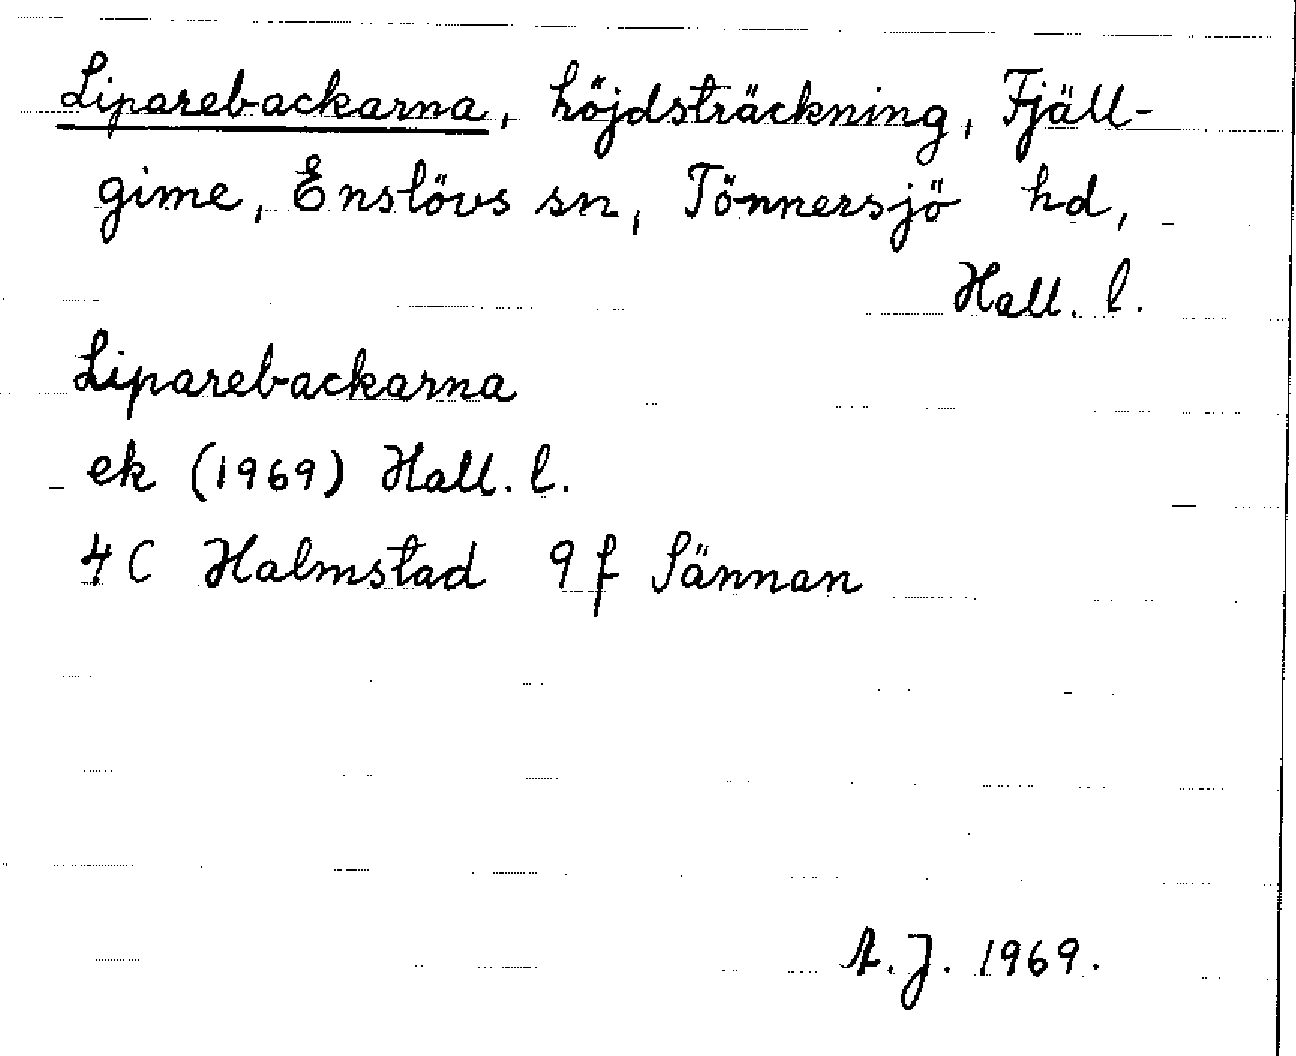 Liparebackarna, höjdsträckning, Fjäll-
gime, Enslövs sn, Tönnersjö hd,
Hall. l.
Liparebackarna
ek (1969) Hall. l.
4C Halmstad 9f Sännan
A.J. 1969.